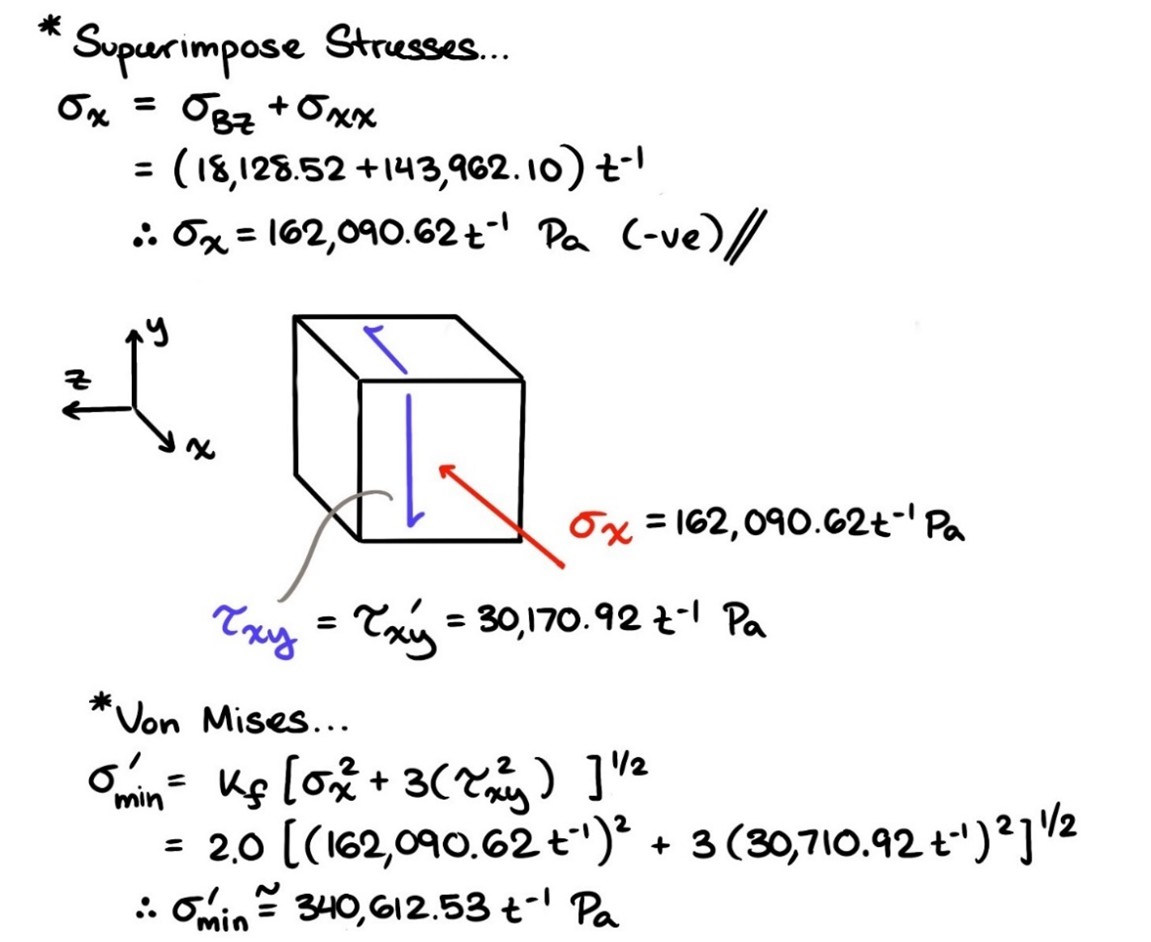 * Superimpose Stresses...
σx = σBz + σxx
= (18,128.52 + 143,962.10) t⁻¹
∴ σx = 162,090.62 t⁻¹ Pa (-ve)//
y
z
x
σx = 162,090.62t⁻¹ Pa
τxy = τxy′ = 30,170.92 t⁻¹ Pa
* Von Mises...
σ′min = Kf [σx² + 3(τxy²) ]^1/2
= 2.0 [(162,090.62 t⁻¹)² + 3 (30,710.92 t⁻¹)²]^1/2
∴ σ′min ≅ 340,612.53 t⁻¹ Pa